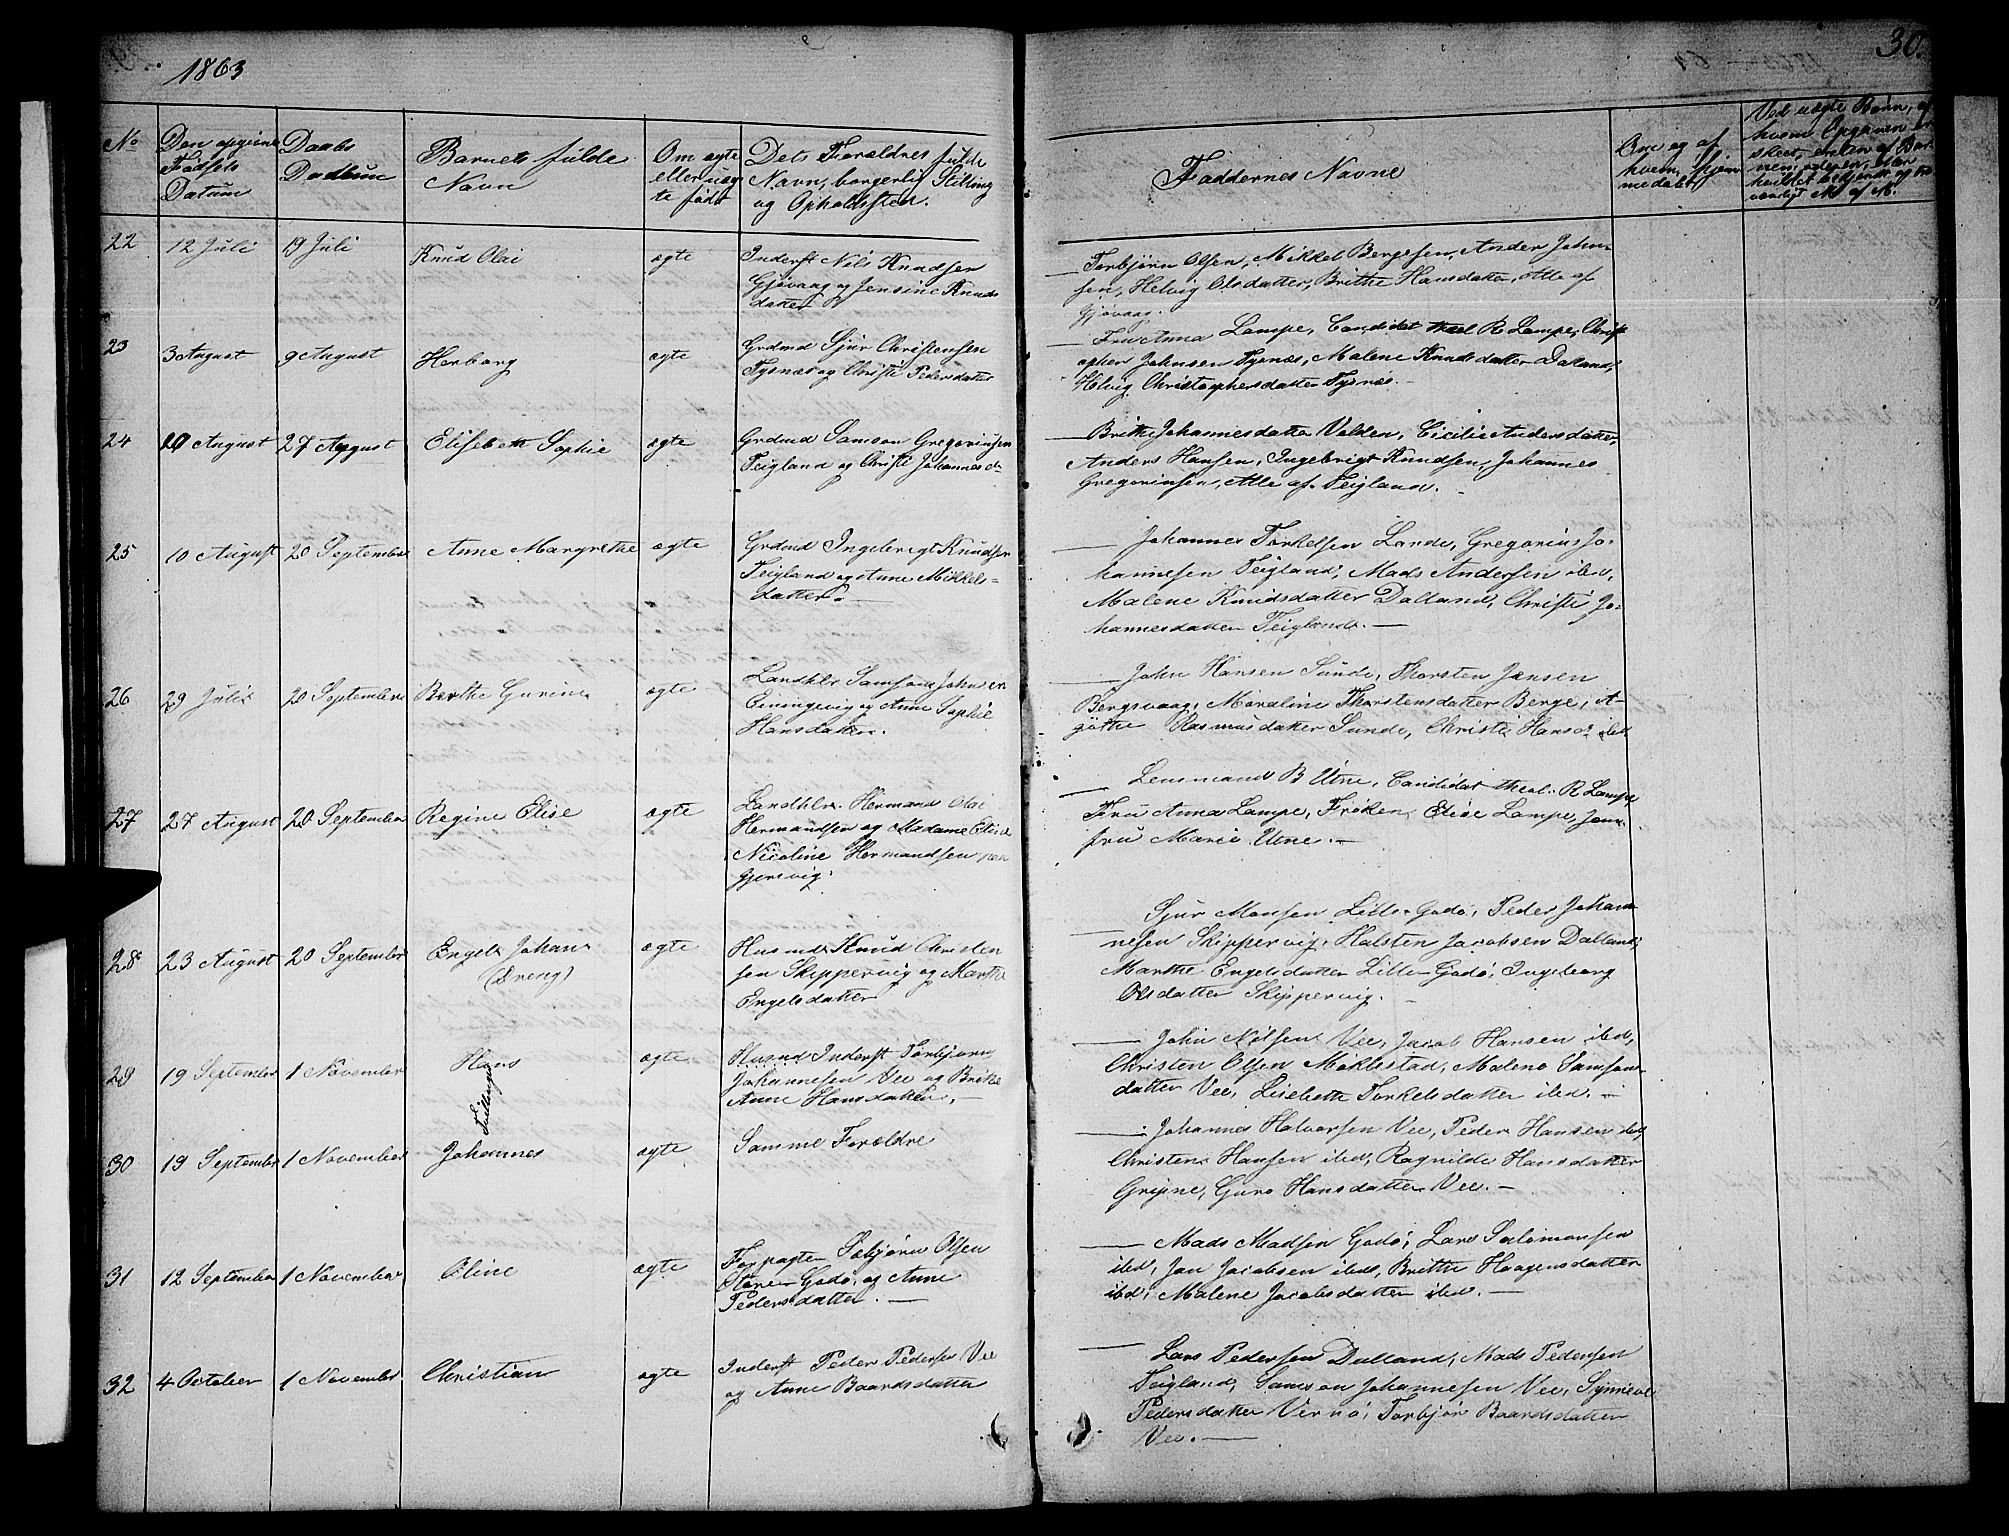 1863
30.
No
Den opgivne
Fødsels
Datum
Daabs
Dadtum
Barnets fulde
Navn
Om ægte
eller uæg
te født
Dets Forældres fulde
Navn, borgerlig Stilling
og Opholdssted.
Faddernes Navne
Om og af
hvem hjem
medøbt
Ved uægte Børn, af
hvem Opgaven er
skeet, enten af Bar
nen
22 12 Juli 19 Juli Knud Olai ægte
Inderst Nils Knudsen
Gjøvaag og Jensine Knuds
datter
Torbjørn Olsen, Mikkel Bergesen, Anders Johan-
sen, Helvig Olsdatter, Brithe Hansdatter, Alle af
Gjøvaag.
23 3 August 9 August Herborg ægte
Grdmd Sjur Christensen
Tysnæs og Christi Pedersdatter
Fru Anna Lampe, Candidat theol R Lampe, Christ
opher Johnsen Tysnæs, Malene Knudsdatter Dalland,
Helvig Christophersdatter Tysnæs.
24 20 August 27 August Elisebeth Sophie ægte
Grdmd Samson Gregoriusen
Teigland og Christi Johannesd-
Brithe Johannesdatter Valden, Cicilie Andersdatter,
Anders Hansen, Ingebrigt Knudsen, Johannes
Gregoriusen, Alle af Teigland.
25 10 August 20 September Anne Margrethe ægte
Grdmd Ingebrigt Knudsen
Teigland og Anne Mikkels-
datter
Johannes Torkelsen Lande, Gregorius Jo-
hannesen Teigland, Mads Andersen ibd,
Malene Knudsdatter Dalland, Christi Jo-
hannesdatter Teigland.
26 29 Juli 20 September Berthe Gurine ægte
Landhlr Samson Johnsen
Einingevig og Anne Sophie
Hansdatter.
John Hansen Sunde, Thorsten Jensen
Bergsvaag, Maraline Thorstensdatter Berge, A-
gøthe Rasmusdatter Sunde, Christi Hansd ibd
27 27 August 20 September Regine Elise ægte
Landhlr. Hermand Olai
Hermandsen og Madame Elise
Nicoline Hermandsen paa
Gjersvig.
Lensmand B Utne, Candidat theol. R Lampe
Fru Anna Lampe, Frøken Elise Lampe, Jom-
fru Marie Utne.
28 23 August 20 September Engel Johan
(Dreng) ægte
Husmd Knud Christen
sen Skippervig og Marthe
Engelsdatter
Sjur Monsen Lille-Godø, Peder Johan-
nesen Skippervig, Halsten Jacobsen Dalland,
Marthe Engelsdatter Lille-Godø, Ingeborg
Olsdatter Skippervig.
29 19 September 1 November Hans ægte
Tvillinger
Husmd Inderst Torbjørn
Johannesen Vee og Brithe
Anne Hansdatter.
John Nilsen Vee, Jacob Hansen ibd,
Christen Olsen Møklestad, Malene Samsons
datter Vee, Lisebeth Torkelsdatter ibd.
30 19 September 1 November Johannes ægte
Samme Forældre
Johannes Halvorsen Vee, Peder Hansen ibd,
Christen Hansen ibd, Ragnilde Hansdatter
Gripne, Guro Hansdatter Vee.
31 12 September 1 November Oline ægte
Forpagter Torbjørn Olsen
Store-Godø, og Anne
Pedersdatter.
Mads Madsen Godø, Lars Salomonsen
ibd, Jan Jacobsen ibd, Brithe Haagensdatter
ibd, Malene Jacobsdatter ibd.
32 4 October 1 November Christian ægte
Inderst Peder Pedersen Vee
og Anne Baardsdatter
Lars Pedersen Dalland, Mads Pedersen
Teigland, Samson Johannesen Vee, Synneve
Pedersdatter Vernø, Torbjør Baardsdatter
Vee.